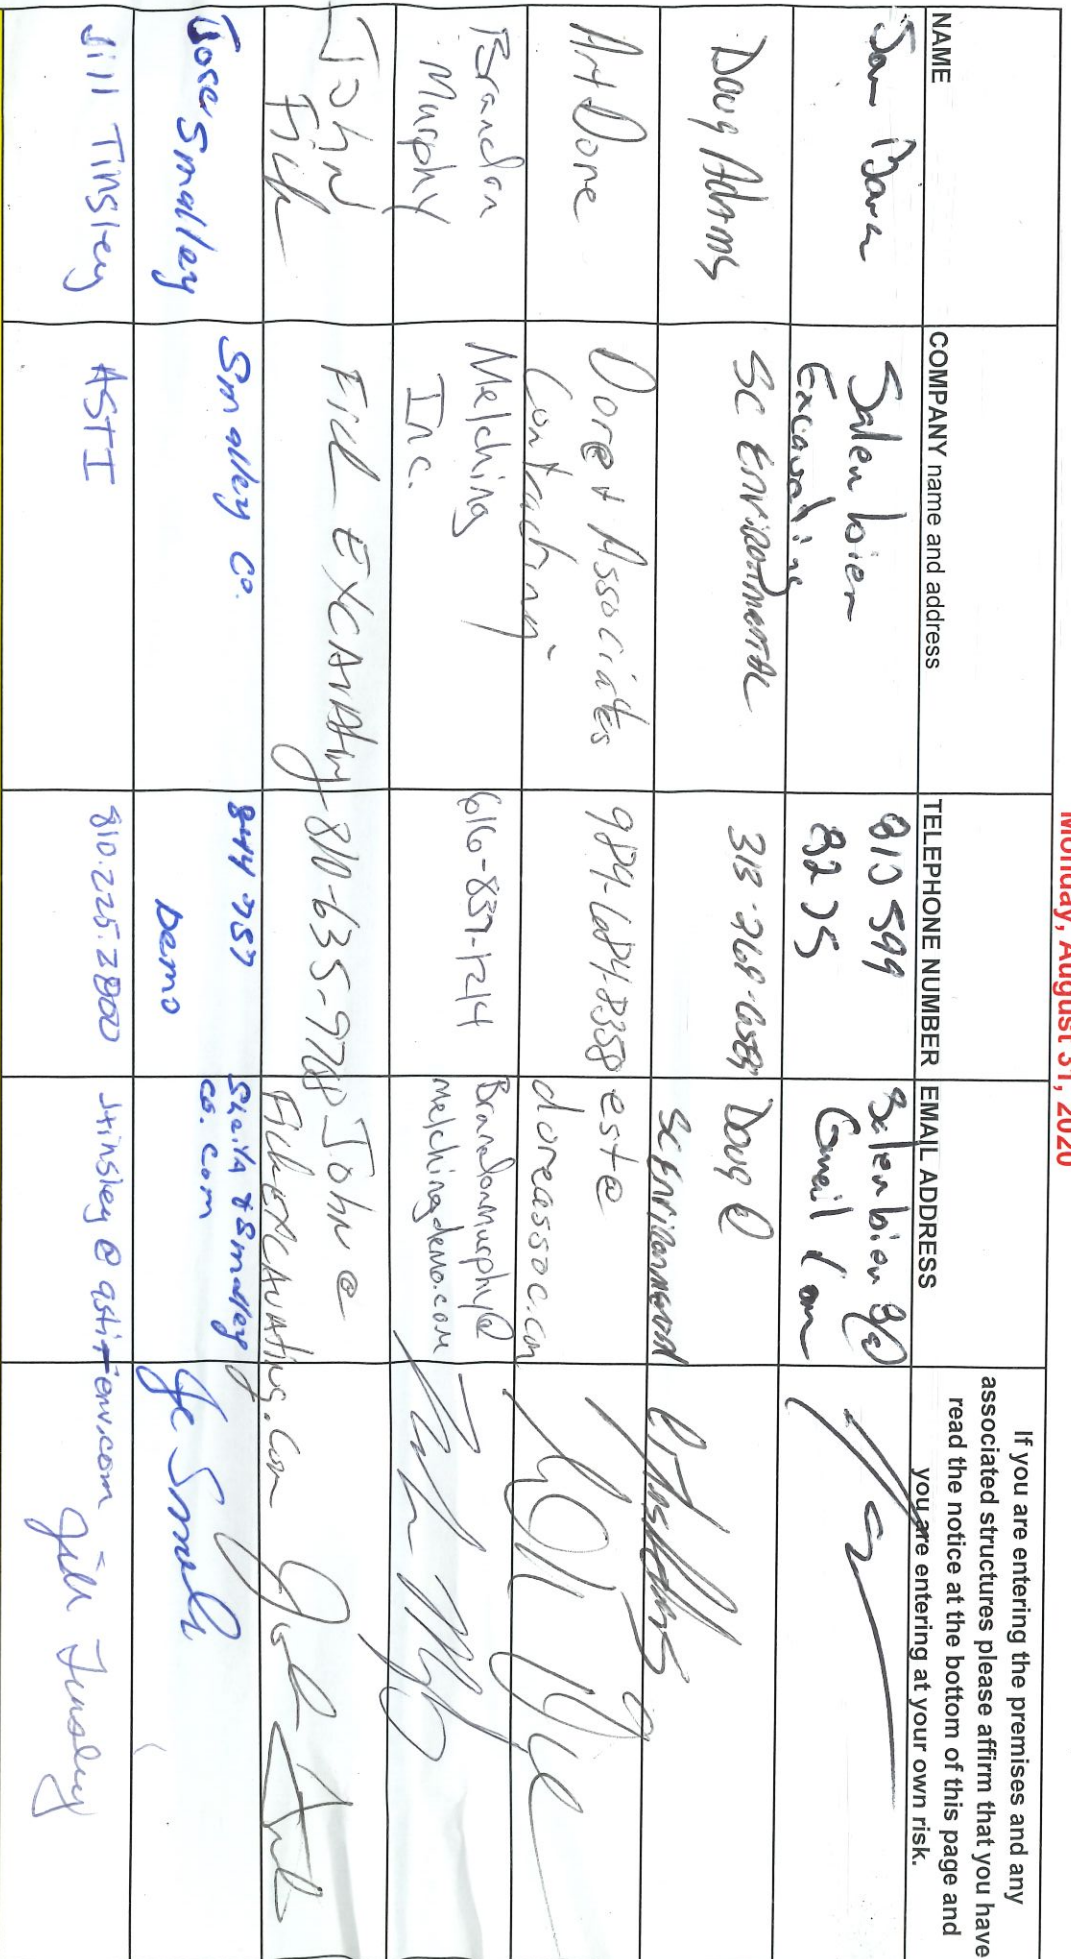 Monday, August 31, 2020
NAME
COMPANY name and address
TELEPHONE NUMBER
EMAIL ADDRESS
If you are entering the premises and any
associated structures please affirm that you have
read the notice at the bottom of this page and
you are entering at your own risk.
Salenbien
Excavating
810 599
8275
Gmail com
Doug Adams
SC Environmental
Doug @
Art Dore
Dore & Associates
Contracting
este
doreassoc.com
Brandon
Murphy
Melching
Inc.
616-837-1214
Brandonmurphy@
melchingdemo.com
John
Fick
Fick Excavating
810-635-9728
John @
Fickexcavating.com
Smalley
Smalley Co.
844 757
Demo
Jill Tinsley
ASTI
810.225.2800
jtinsley@asti-env.com
Jill Tinsley